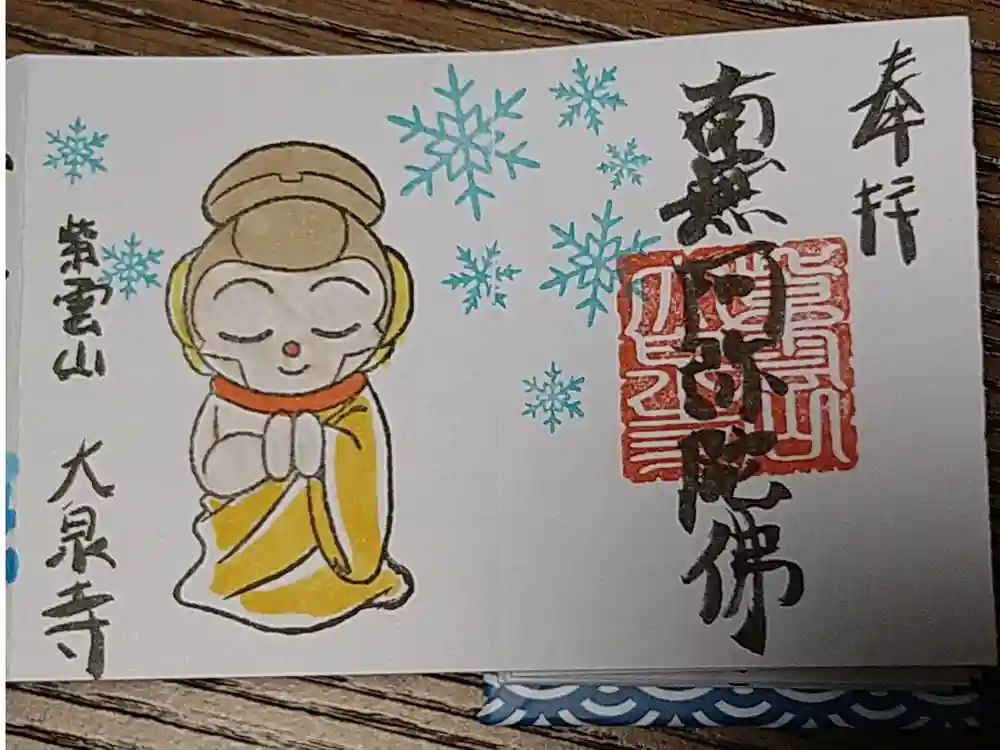 奉拝
南無阿弥陀佛
紫雲山
大泉寺